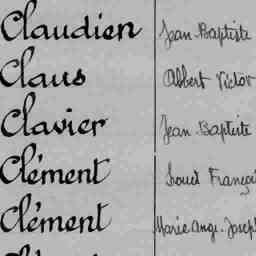 Claudien Jean-Baptiste
Claus Albert Victor
Clavier Jean-Baptiste
Clément Louis Françoi
Clément Marie Ange-Joseph